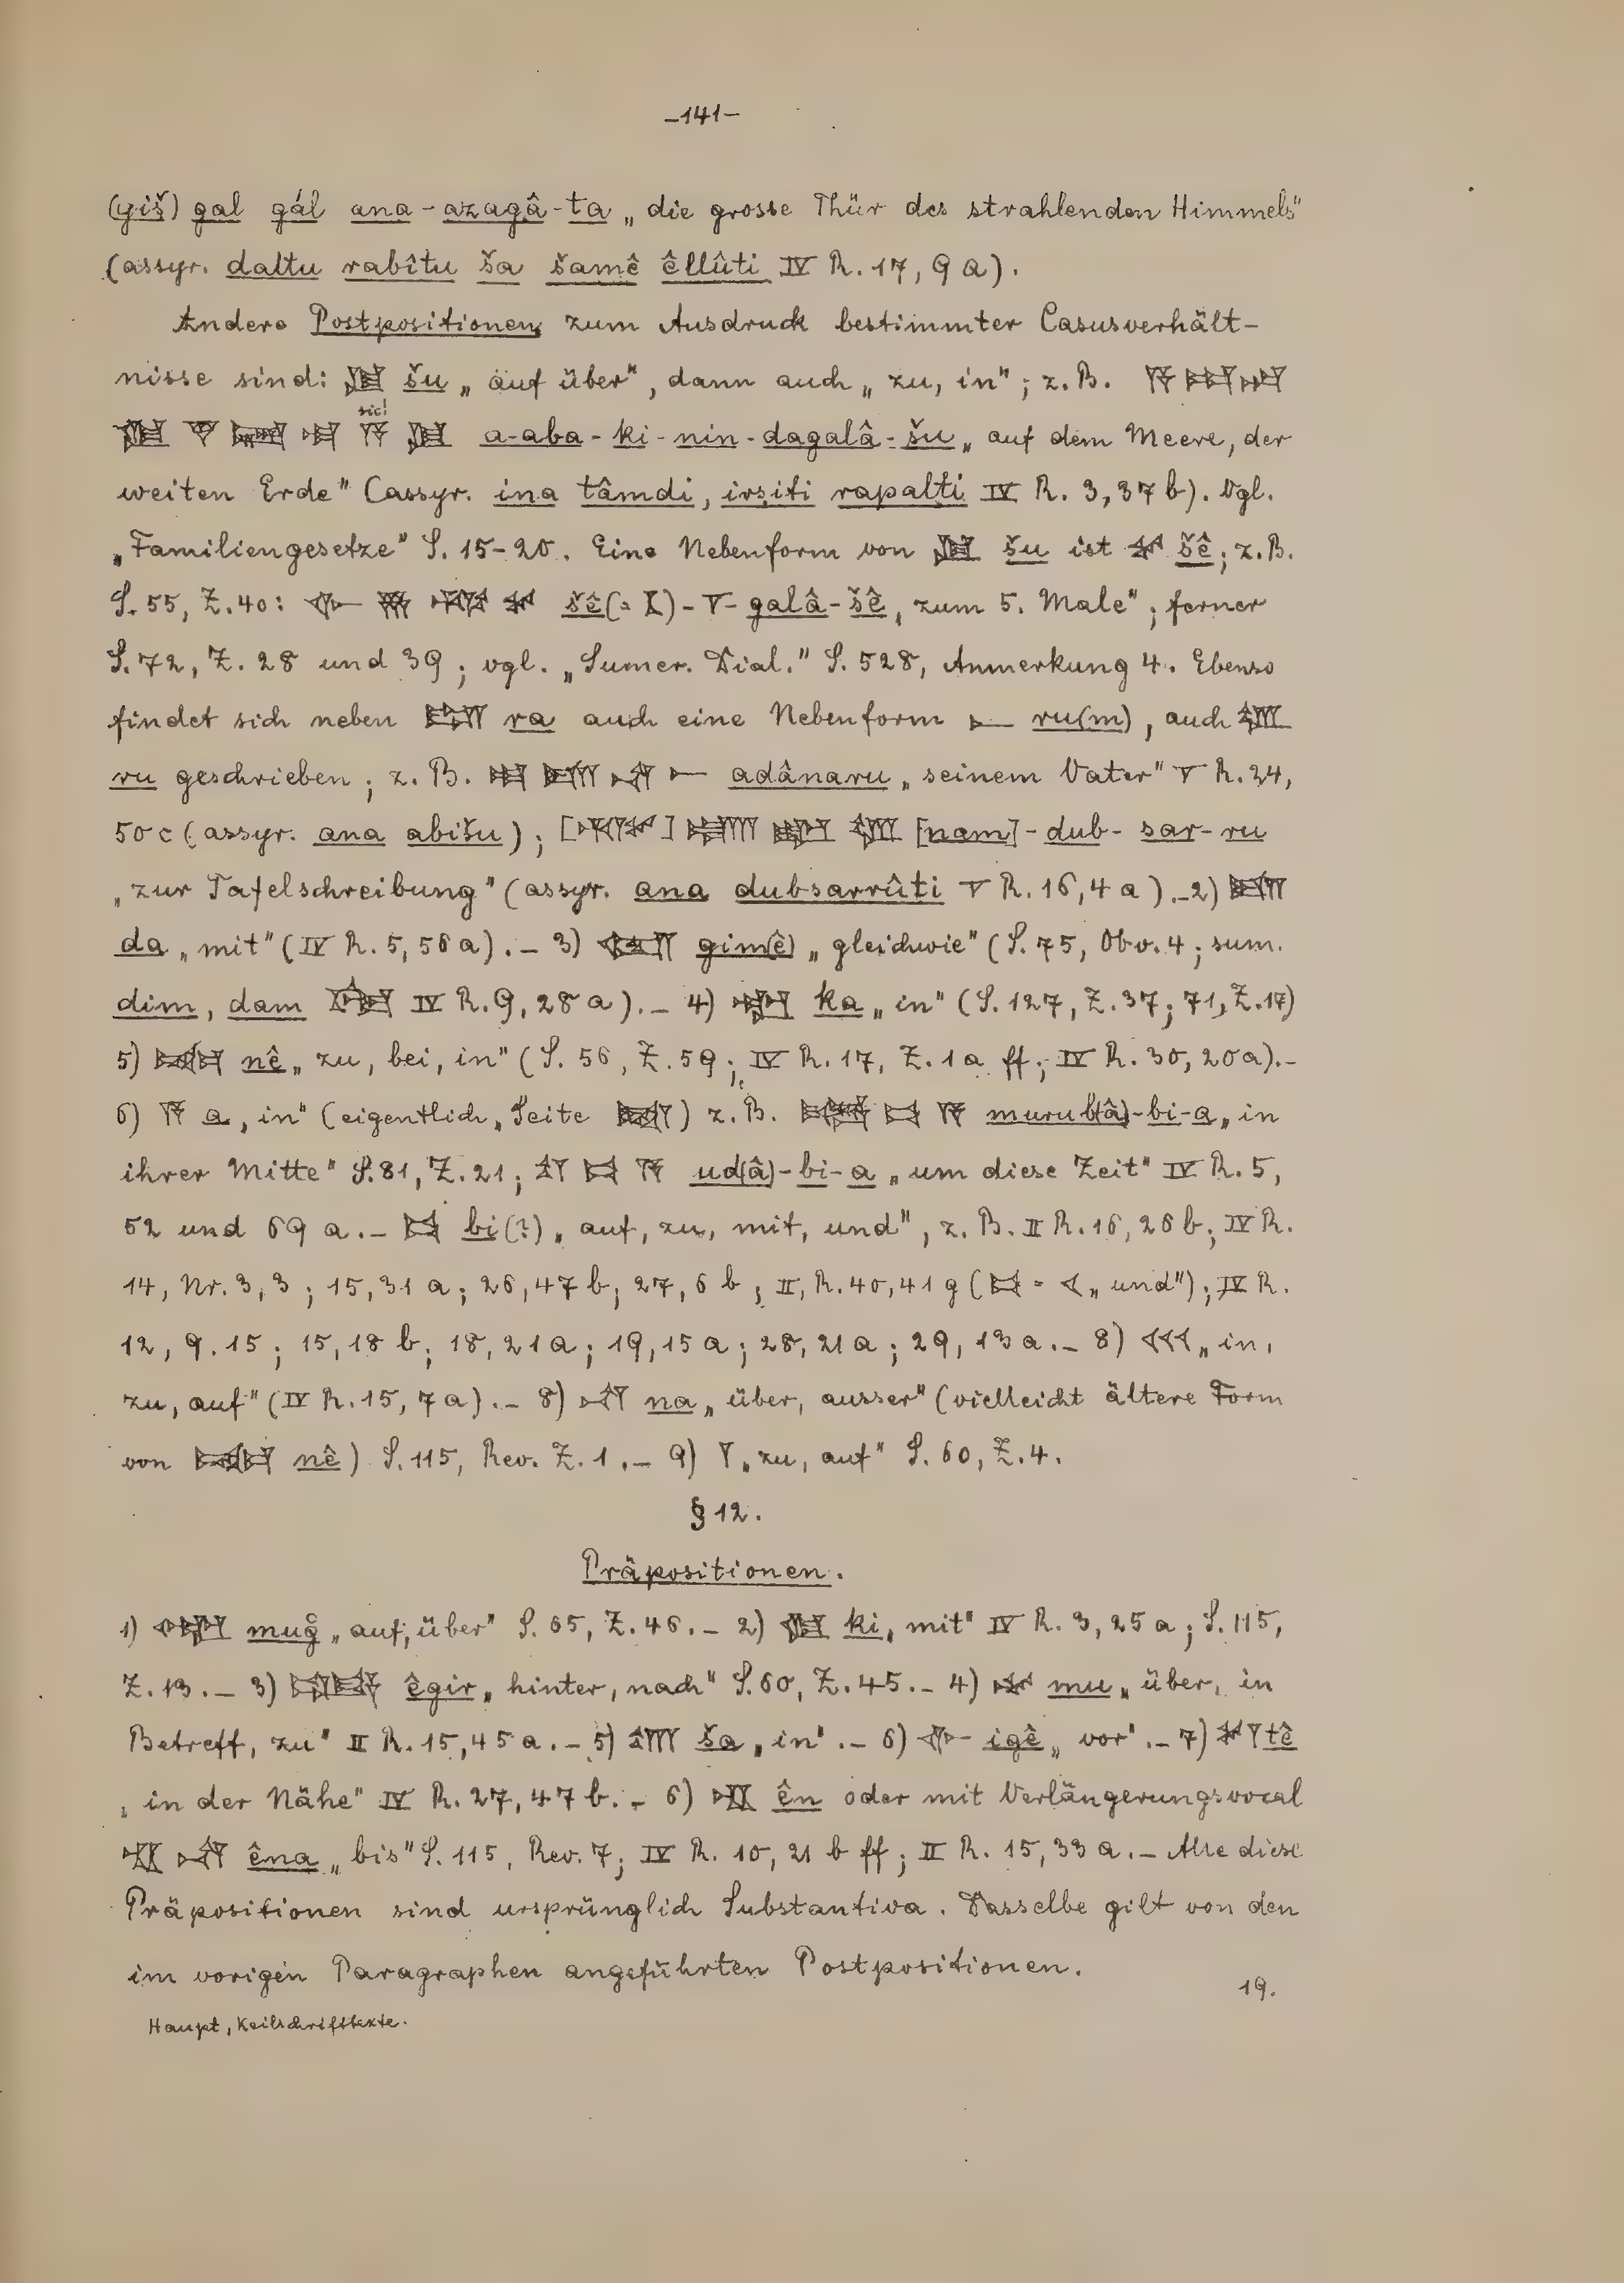 -141-
(giš) gal gál ana-azagâ-ta „die grosse Thür des strahlenden Himmels"
(assyr. daltu rabîtu ša šamê êllûti IV R. 17, 9 a).
Andere Postpositionen zum Ausdruck bestimmter Casusverhält-
nisse sind: šu „auf über", dann auch „zu, in"; z. B.
sic!
a-aba-ki-nin-dagalâ-šu „auf dem Meere, der
weiten Erde" (assyr. ina tâmdi, irṣiti rapalti IV R. 3, 37 b). Vgl.
„Familiengesetze" S. 15-20. Eine Nebenform von šu ist šê; z. B.
S. 55, Z. 40: šê(= X)-V-galâ-šê „zum 5. Male"; ferner
S. 72, Z. 28 und 39; vgl. „Sumer. Dial." S. 528, Anmerkung 4. Ebenso
findet sich neben ra auch eine Nebenform ru(m), auch
ru geschrieben; z. B. adânaru „seinem Vater" V R. 24,
50 c (assyr. ana abišu); [nam]-dub-sar-ru
„zur Tafelschreibung" (assyr. ana dubsarrûti V R. 16, 4 a).-2)
da „mit" (IV R. 5, 56 a).- 3) gim(ê) „gleichwie" (S. 75, Obv. 4; sum.
dim, dam IV R. 9, 28 a).- 4) ka „in" (S. 127, Z. 37; 71, Z. 17)
5) nê „zu, bei, in" (S. 56, Z. 59; IV R. 17, Z. 1 a ff; IV R. 30, 20 a).-
6) 𒀀 a „in" (eigentlich „Seite ) z. B. 𒀀 murub(â)-bi-a „in
ihrer Mitte" S. 81, Z. 21; 𒀀 ud(â)-bi-a „um diese Zeit" IV R. 5,
52 und 69 a.- bi(?) „auf, zu, mit, und", z. B. II R. 16, 26 b; IV R.
14, Nr. 3, 3; 15, 31 a; 26, 47 b; 27, 6 b; II, R. 40, 41 g ( = 𒌋 „und"); IV R.
12, 9. 15; 15, 18 b; 18, 21 a; 19, 15 a; 28, 21 a; 29, 13 a.- 8) 𒌍 „in,
zu, auf" (IV R. 15, 7 a).- 8) na „über, ausser" (vielleicht ältere Form
von nê) S. 115, Rev. Z. 1.- 9) 𒁹 „zu, auf" S. 60, Z. 4.
§ 12.
Präpositionen.
1) muğ „auf, über" S. 65, Z. 46.- 2) ki „mit" IV R. 3, 25 a; S. 115,
Z. 13.- 3) êgir „hinter, nach" S. 60, Z. 45.- 4) mu „über, in
Betreff, zu" II R. 15, 45 a.- 5) ša „in".- 6) igê „vor".- 7) tê
„in der Nähe" IV R. 27, 47 b.- 6) ên oder mit Verlängerungsvocal
êna „bis" S. 115, Rev. 7; IV R. 10, 21 b ff; II R. 15, 33 a.- Alle diese
Präpositionen sind ursprünglich Substantiva. Dasselbe gilt von den
im vorigen Paragraphen angeführten Postpositionen.
19.
Haupt, Keilschrifttexte.